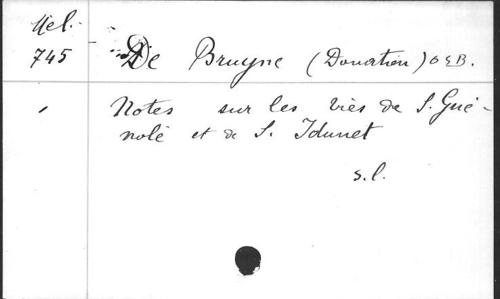 Mel.
745
De Bruyne (Donatien) O S B.
1
Notes sur les vies de S. Gué-
nolé et de S. Idunet
s.l.